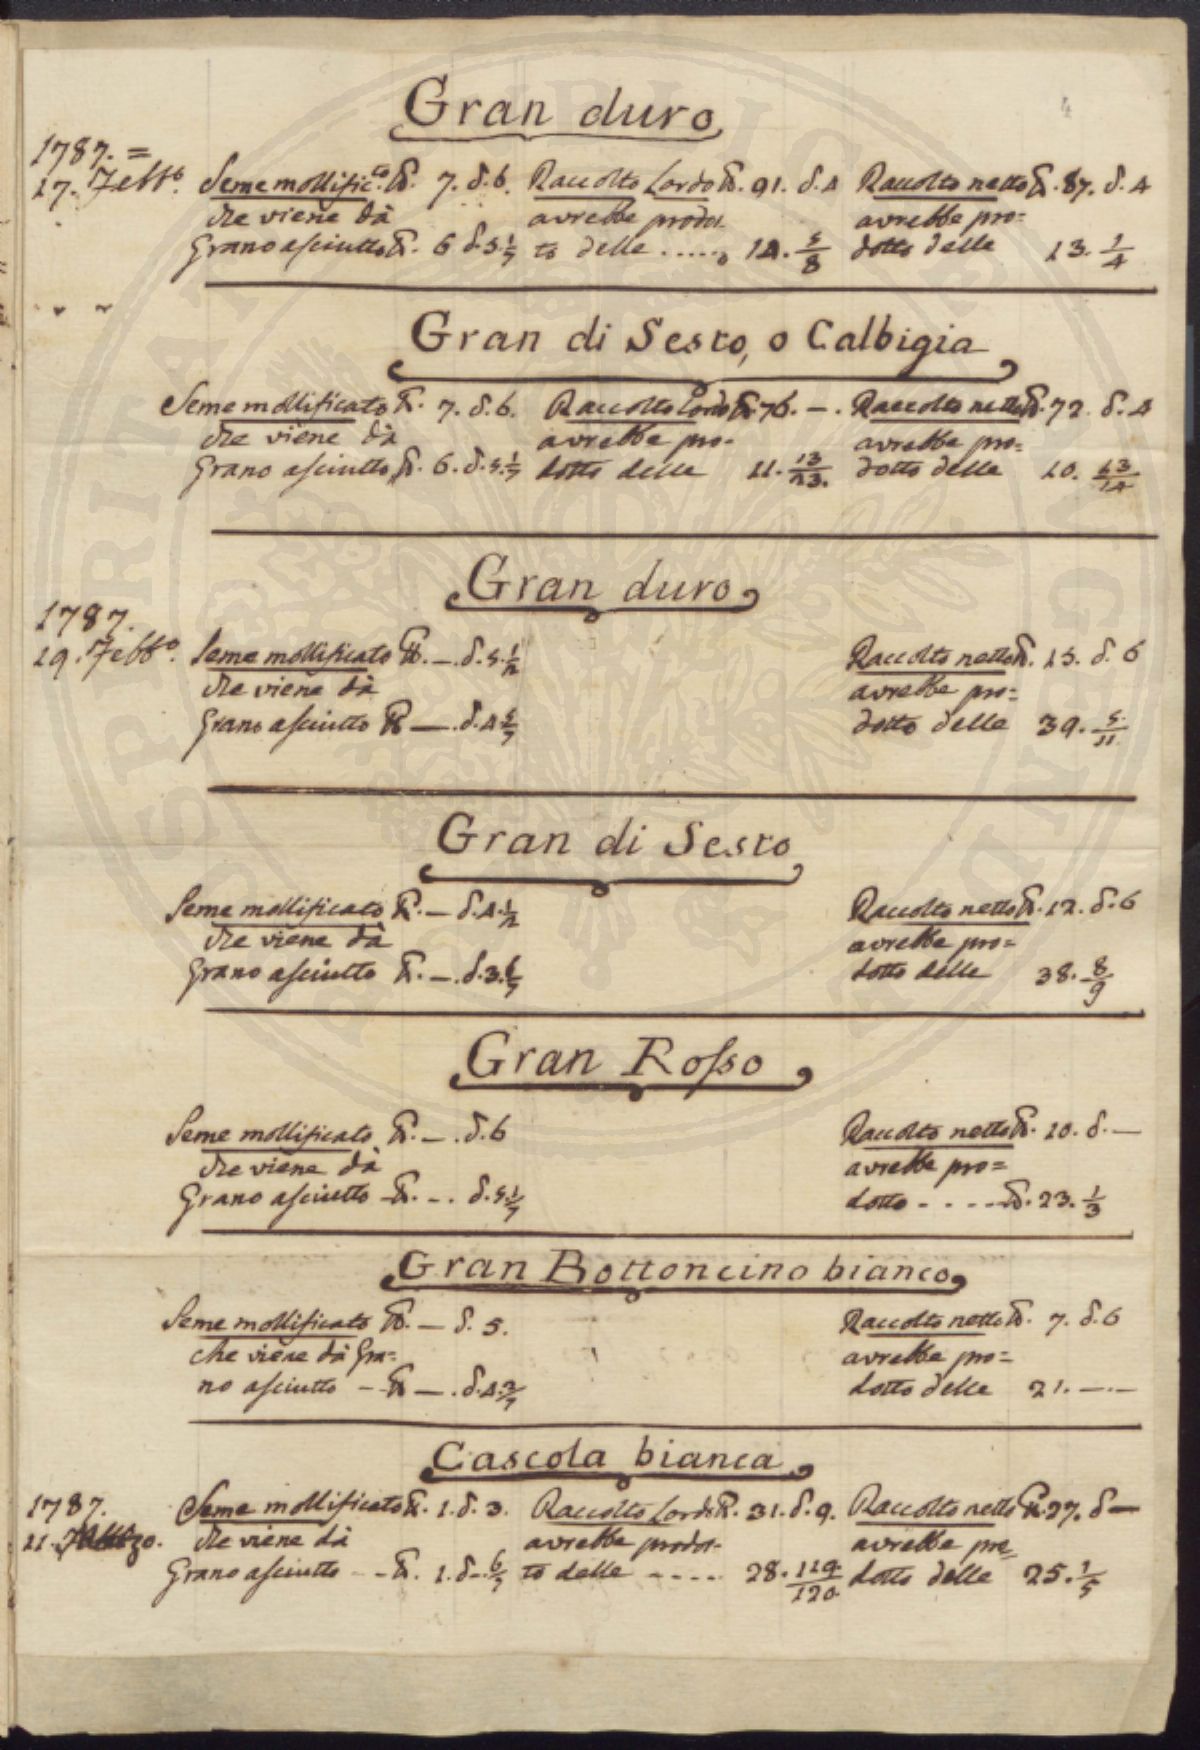 4
Gran duro
1787. =
17. Febb.º Seme mollific.to ℔. 7. d. 6. Raccolto Lordo ℔. 91. d. 4 Raccolto netto ℔. 87. d. 4
che viene dà avrebbe prodot- avrebbe pro=
Grano asciutto ℔. 6 d. 5. 1/7 to delle ..... 14. 5/8 dotto delle 13. 1/4
Gran di Sesto, o Calbigia
Seme mollificato ℔. 7. d. 6. Raccolto Lordo ℔. 76. — . Raccolto netto ℔. 72. d. 4
che viene dà avrebbe pro- avrebbe pro=
Grano asciutto ℔. 6. d. 5. 1/7 dotto delle 11. 13/23. dotto delle 10. 13/14
Gran duro
1787.
19. Febb.º Seme mollificato ℔. —. d. 5. 1/2 Raccolto netto ℔. 15. d. 6
che viene dà avrebbe pro=
Grano asciutto ℔ —. d. 4 5/7 dotto delle 39. 5/11.
Gran di Sesto
Seme mollificato ℔. — d. 4. 1/2 Raccolto netto ℔. 12. d. 6
che viene dà avrebbe pro=
Grano asciutto ℔. —. d. 3. 6/7 dotto delle 38. 8/9
Gran Rosso
Seme mollificato ℔. —. d. 6 Raccolto netto ℔. 10. d. —
che viene dà avrebbe pro=
Grano asciutto — ℔. — . d. 5. 1/7 dotto - - - - ℔. 23. 1/3
Gran Bottoncino bianco
Seme mollificato ℔. — d. 5. Raccolto netto ℔. 7. d. 6
che viene dà Gra= avrebbe pro=
no asciutto — ℔ —. d. 4. 2/7 dotto delle 21. —.—
Cascola bianca
1787. Seme mollificato ℔. 1. d. 3. Raccolto Lordo ℔. 31. d. 9. Raccolto netto ℔. 27. d —
21. che viene dà avrebbe prodot- avrebbe pro=
Grano asciutto - - ℔. 1. d —. 6/7 to delle - - - - 28. 119/120 dotto delle 25. 1/5